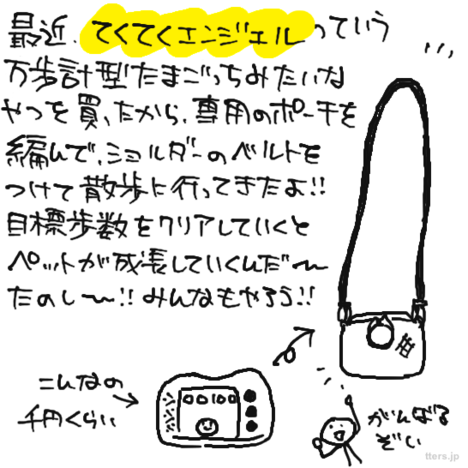 最近、てくてくエンジェルっていう
万歩計型たまごっちみたいな
やつを買ったから、専用のポーチを
編んで、ショルダーのベルトを
つけて散歩に行ってきたよ!!
目標歩数をクリアしていくと
ペットが成長していくんだ〜
たのし〜!! みんなもやろう!!
こんなの
千円くらい
00100
がんばる
ぞい
tters.jp